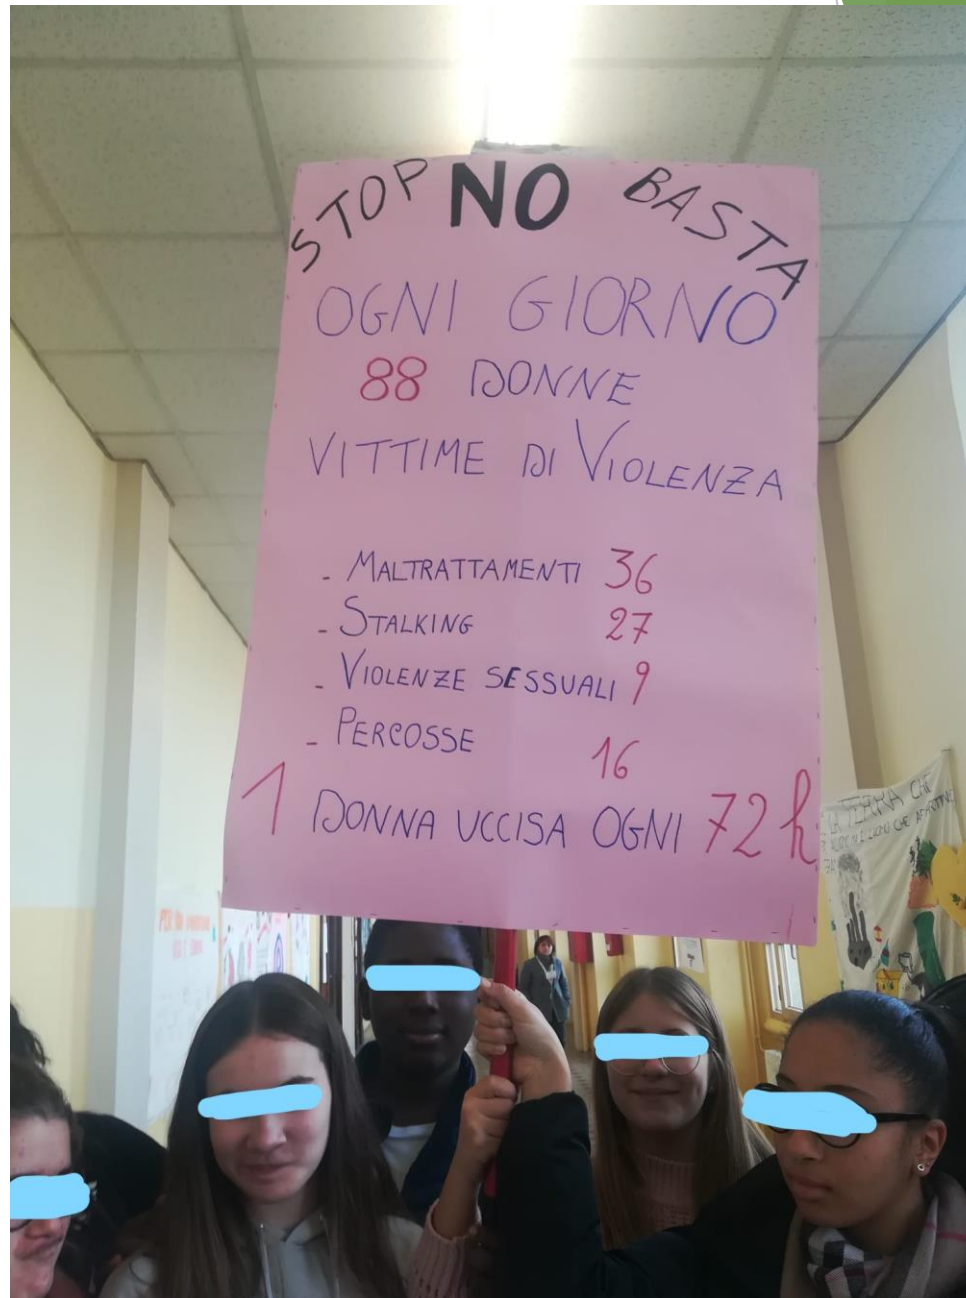 STOP NO BASTA
OGNI GIORNO
88 DONNE
VITTIME DI VIOLENZA
- MALTRATTAMENTI 36
- STALKING 27
- VIOLENZE SESSUALI 9
- PERCOSSE 16
1 DONNA UCCISA OGNI 72 h
LA TERRA CHE
UOMO CHE
PER UN